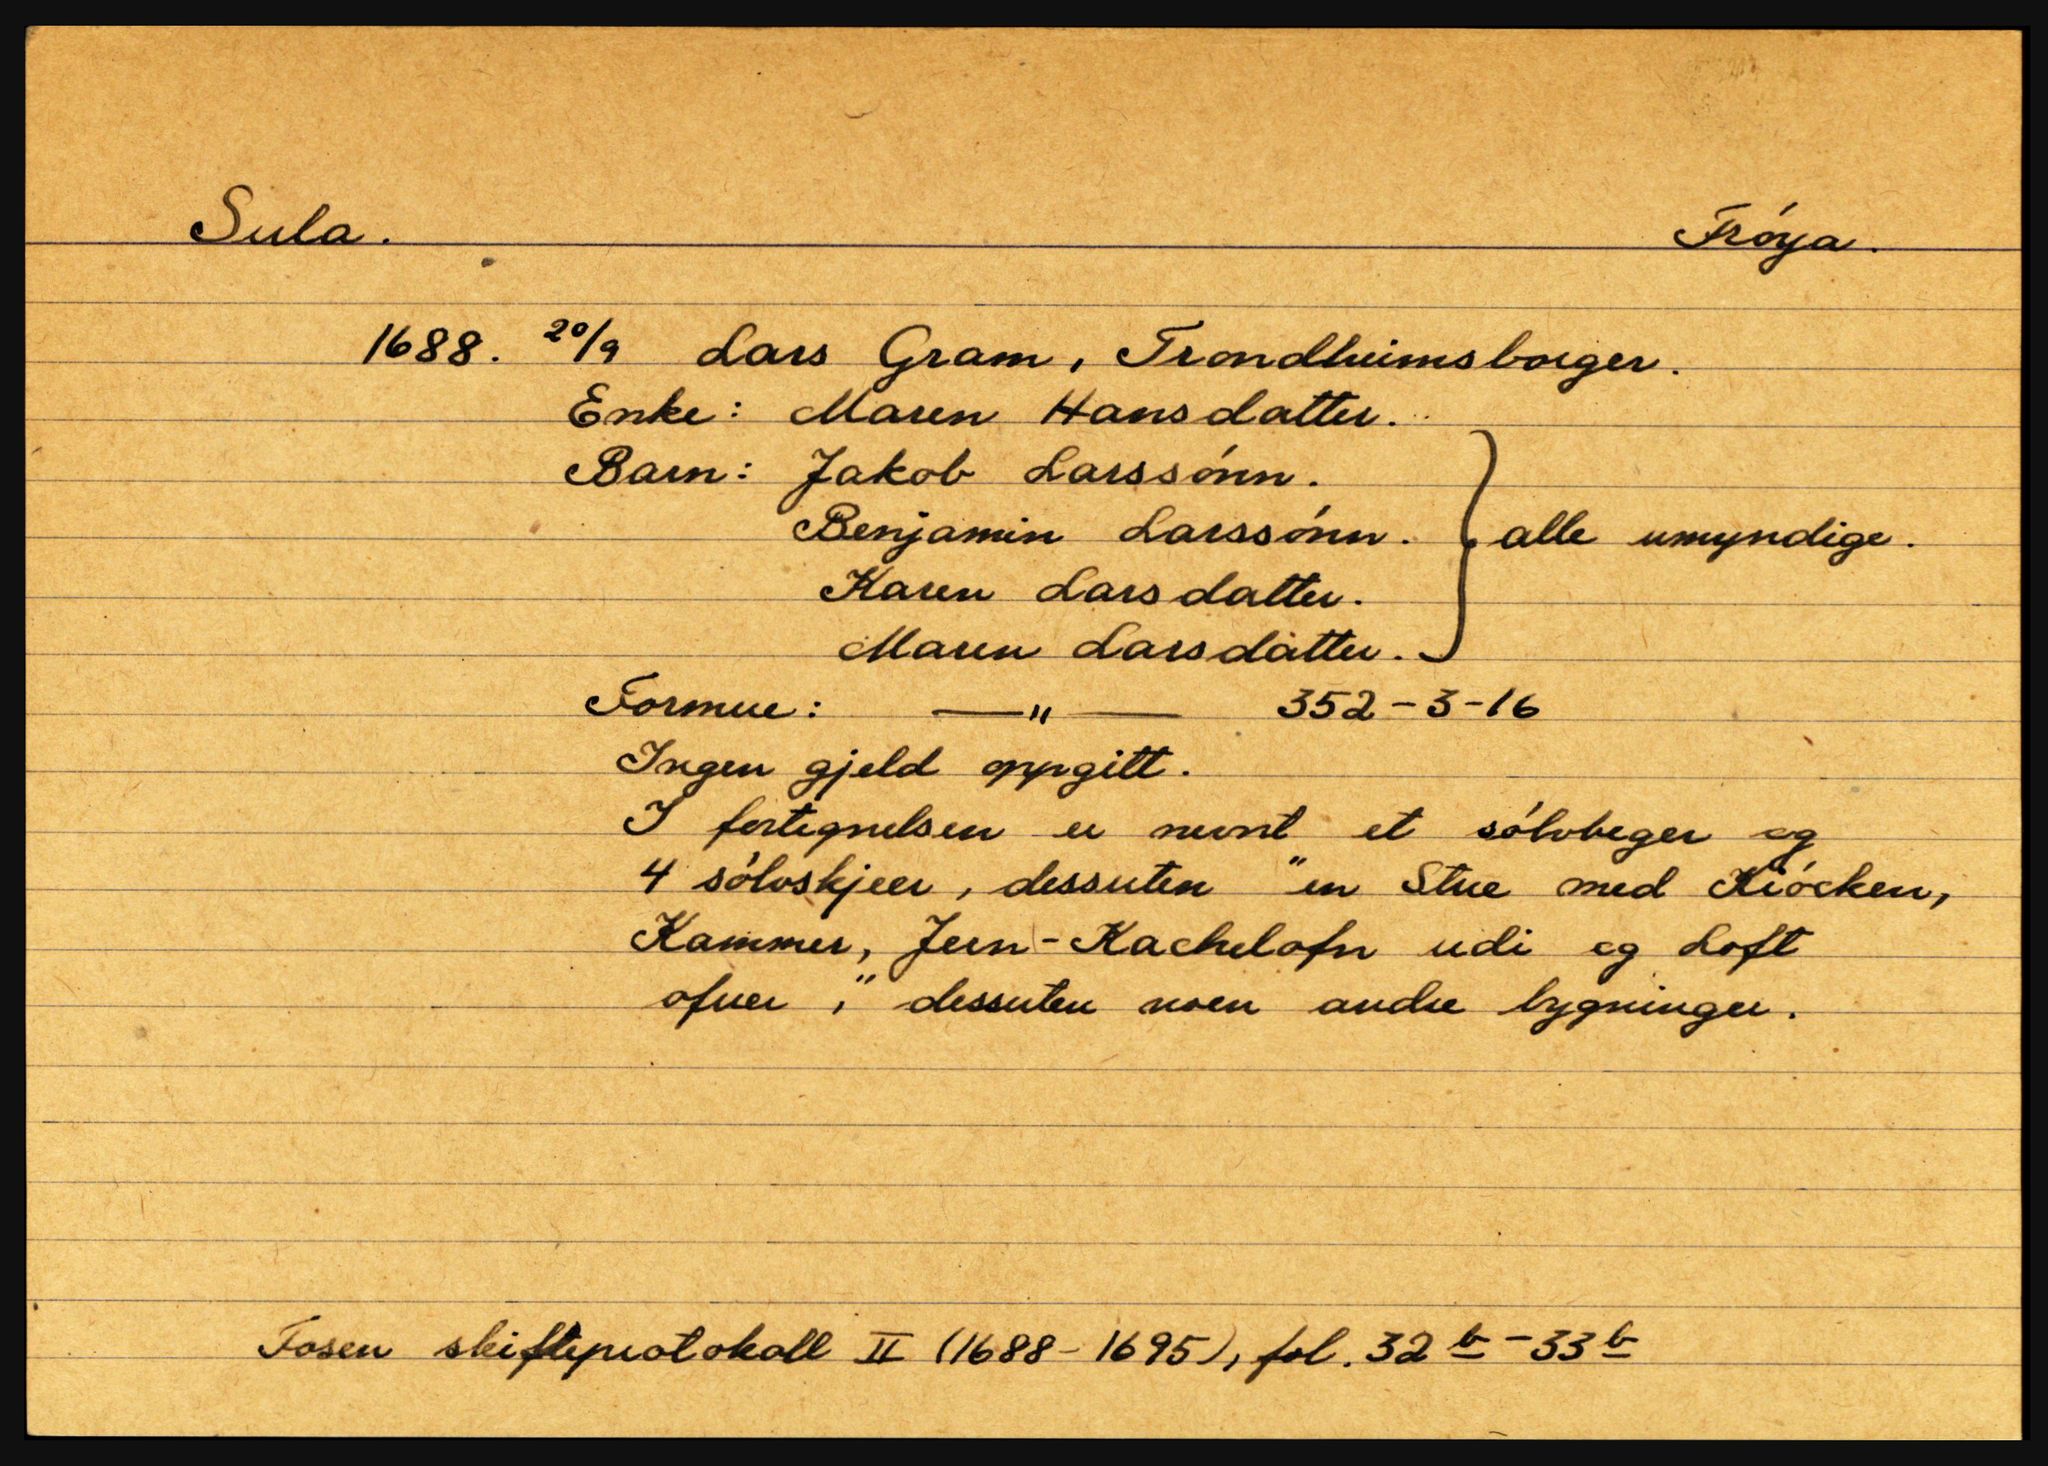 Sula. Fróya.
1688. 20/9 Lars Gram, Trondheimsborger.
Enke: Maren Hansdatter.
Barn: Jakob Larssónn.
Benjamin Larssónn. } alle umyndige.
Karen Larsdatter.
Maren Larsdatter.
Formue: —"— 352-3-16
Ingen gjeld oppgitt.
I fortegnelsen er nevnt et sólvbeger og
4 sólvskjeer, dessuten "en Stue med Kiócken,
Kammer, Jern-Kachelofn udi og Loft
ofuer," dessuten noen andre bygninger.
Fosen skifteprotokoll II (1688-1695), fol. 32 b - 33 b